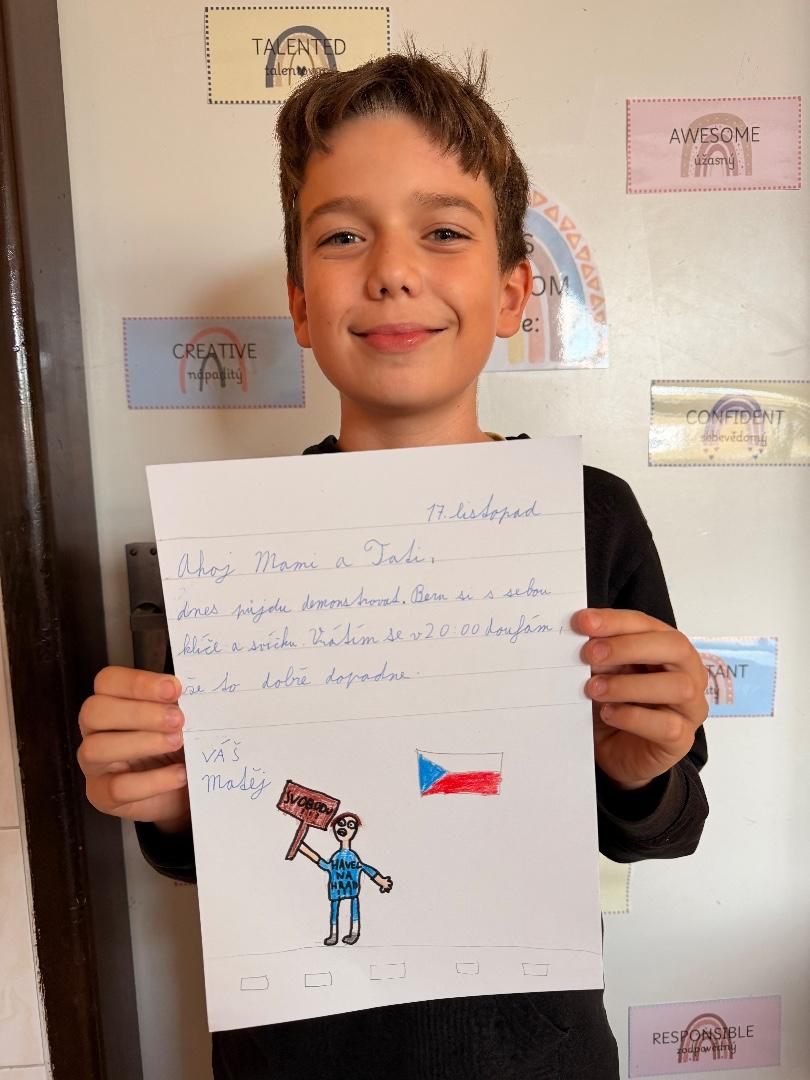 TALENTED
AWESOME
úžasný
S
OM
e:
CREATIVE
nápaditý
CONFIDENT
sebevědomý
17. listopad
Ahoj Mami a Tati,
dnes půjdu demonstrovat. Beru si s sebou
klíče a svíčku. Vrátím se v 20:00 doufám,
že to dobře dopadne.
VÁŠ
Matěj
SVOBODU
!!!
HAVEL
NA
HRAD
!!!
TANT
RESPONSIBLE
zodpovědný